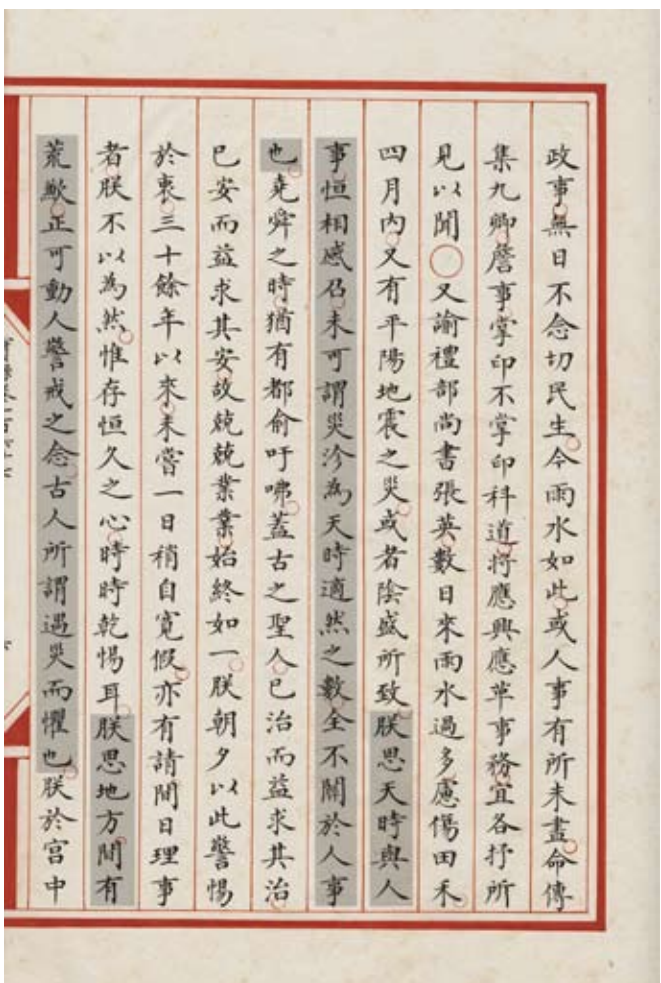 政事無日不念切民生今雨水如此或人事有所未盡命傳
集九卿詹事掌印不掌印科道將應興應革事務宜各抒所
見以聞○又諭禮部尚書張英數日來雨水過多慮傷田禾
四月內又有平陽地震之災或者陰盛所致朕思天時與人
事恒相感召未可謂災沴為天時適然之數全不關於人事
也堯舜之時猶有都俞吁咈蓋古之聖人已治而益求其治
已安而益求其安故兢兢業業始終如一朕朝夕以此警惕
於衷三十餘年以來未嘗一日稍自寬假亦有請間日理事
者朕不以為然惟存恒久之心時時乾惕耳朕思地方間有
荒歉正可動人警戒之念古人所謂遇災而懼也朕於宮中